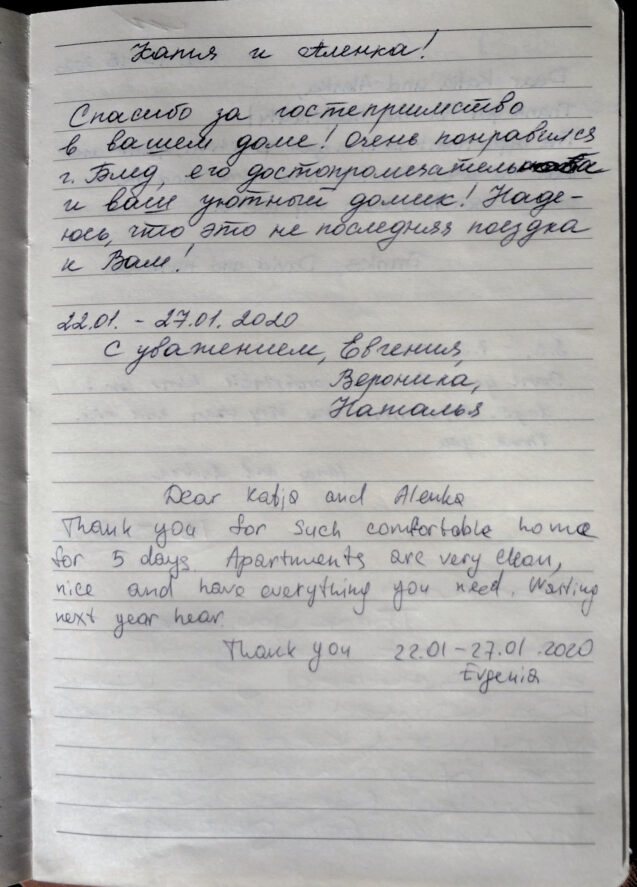 Катя и Аленка!
Спасибо за гостеприимство
в вашем доме! Очень понравился
г. Блед, его
и ваш уютный домик! Наде-
юсь, что это не последняя поездка
к Вам!
22.01. - 27.01.2020
С уважением, Евгения,
Вероника,
Наталья
Dear Katja and Alenka
Thank you for such comfortable home
for 5 days. Apartments are very clean,
nice and have everything you need. Waiting
next year hear.
Thank you 22.01 - 27.01.2020
Evgenia